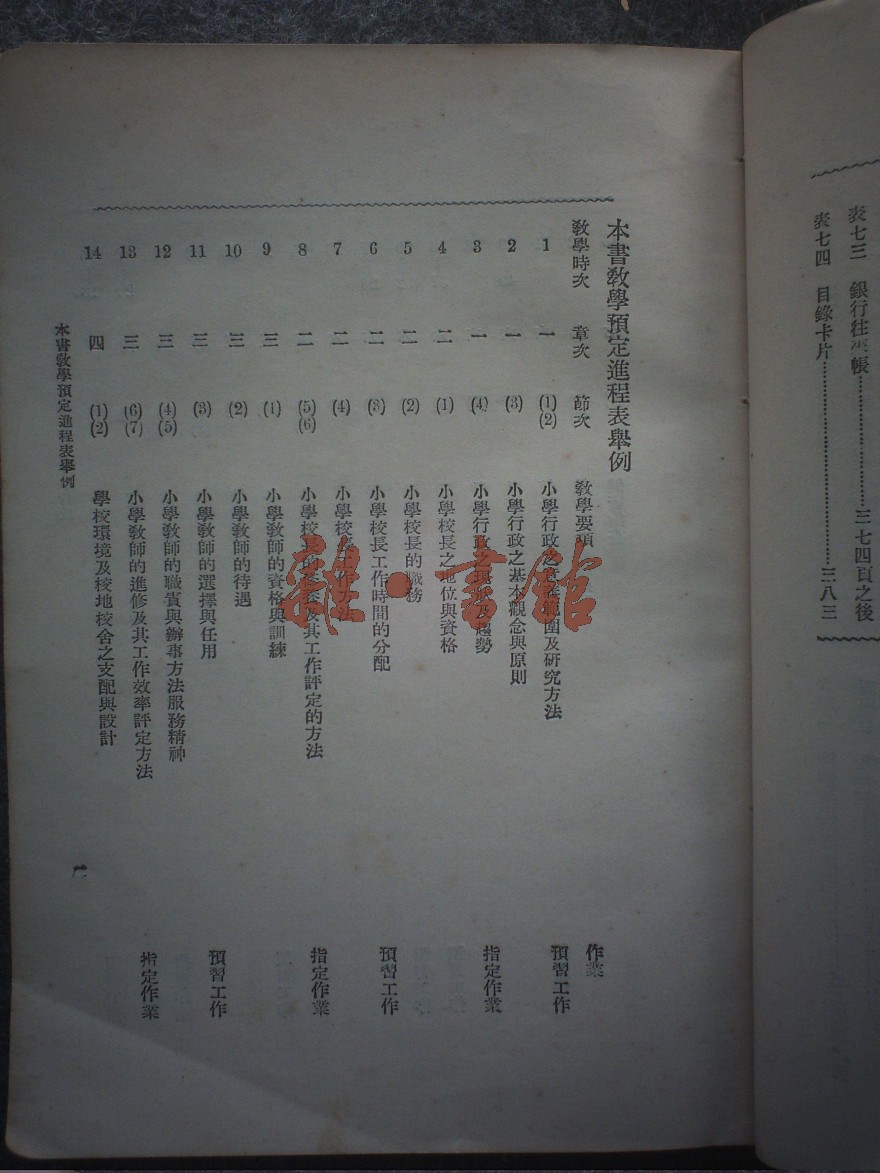 表七三　銀行往來帳……………三七四頁之後
表七四　目錄卡片……………三八三
本書教學預定進程表舉例
教學時次　章次　節次　教學要項　作業
1　一　(1)(2)　小學行政之意義範圍及研究方法　預習工作
2　一　(3)　小學行政之基本觀念與原則
3　一　(4)　小學行政之現狀及趨勢　指定作業
4　二　(1)　小學校長之地位與資格
5　二　(2)　小學校長的職務
6　二　(3)　小學校長工作時間的分配　預習工作
7　二　(4)　小學校長工作方法
8　二　(5)(6)　小學校長的及其工作評定的方法　指定作業
9　三　(1)　小學教師的資格與訓練
10　三　(2)　小學教師的待遇
11　三　(3)　小學教師的選擇與任用　預習工作
12　三　(4)(5)　小學教師的職責與辦事方法服務精神
13　三　(6)(7)　小學教師的進修及其工作效率評定方法　指定作業
14　四　(1)(2)　學校環境及校地校舍之支配與設計
本書教學預定進程表舉例
雜·書館